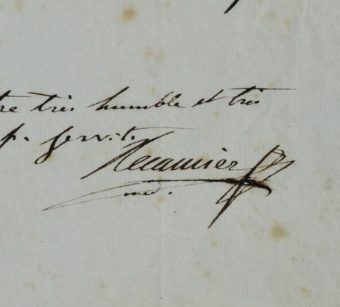 tre très humble et très
p. servit.
Recamier
md.